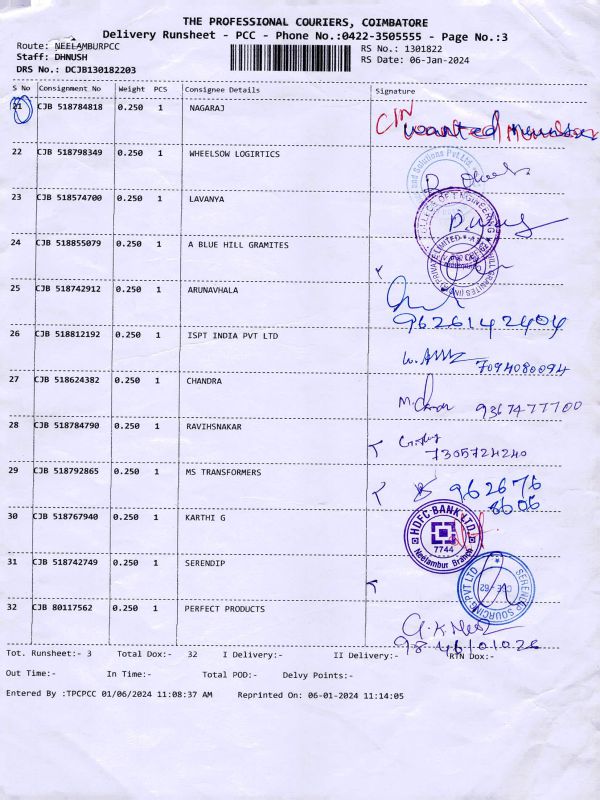 THE PROFESSIONAL COURIERS, COIMBATORE
Delivery Runsheet - PCC - Phone No.:0422-3505555 - Page No.:3
Route: NEELAMBURPCC
RS No.: 1301822
Staff: DHNUSH
RS Date: 06-Jan-2024
DRS No.: DCJB130182203
S No Consignment No Weight PCS Consignee Details Signature
21 CJB 518784818 0.250 1 NAGARAJ
wanted
22 CJB 518798349 0.250 1 WHEELSOW LOGIRTICS
23 CJB 518574700 0.250 1 LAVANYA
24 CJB 518855079 0.250 1 A BLUE HILL GRAMITES
25 CJB 518742912 0.250 1 ARUNAVHALA
9626142404
26 CJB 518812192 0.250 1 ISPT INDIA PVT LTD
7094080094
27 CJB 518624382 0.250 1 CHANDRA
9367477700
28 CJB 518784790 0.250 1 RAVIHSNAKAR
7305724240
29 CJB 518792865 0.250 1 MS TRANSFORMERS
962676
8606
30 CJB 518767940 0.250 1 KARTHI G
HDFC BANK LTD.
7744
Neelambur Branch
31 CJB 518742749 0.250 1 SERENDIP
32 CJB 80117562 0.250 1 PERFECT PRODUCTS
9846101026
Tot. Runsheet:- 3 Total Dox:- 32 I Delivery:- II Delivery:- RTN Dox:-
Out Time:- In Time:- Total POD:- Delvy Points:-
Entered By :TPCPCC 01/06/2024 11:08:37 AM Reprinted On: 06-01-2024 11:14:05